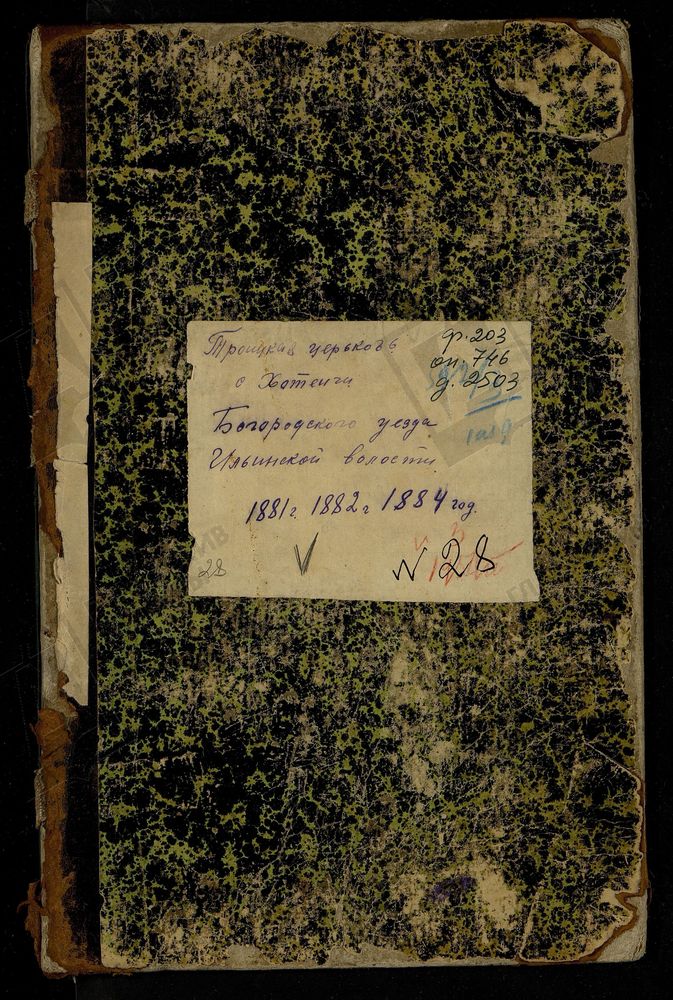 Троицкая церьковь
ф. 203
оп. 746
д. 2503
с Хотеичи
Богородского уезда
Ильинской волости
1881 г. 1882 г 1884 год.
28
N 28